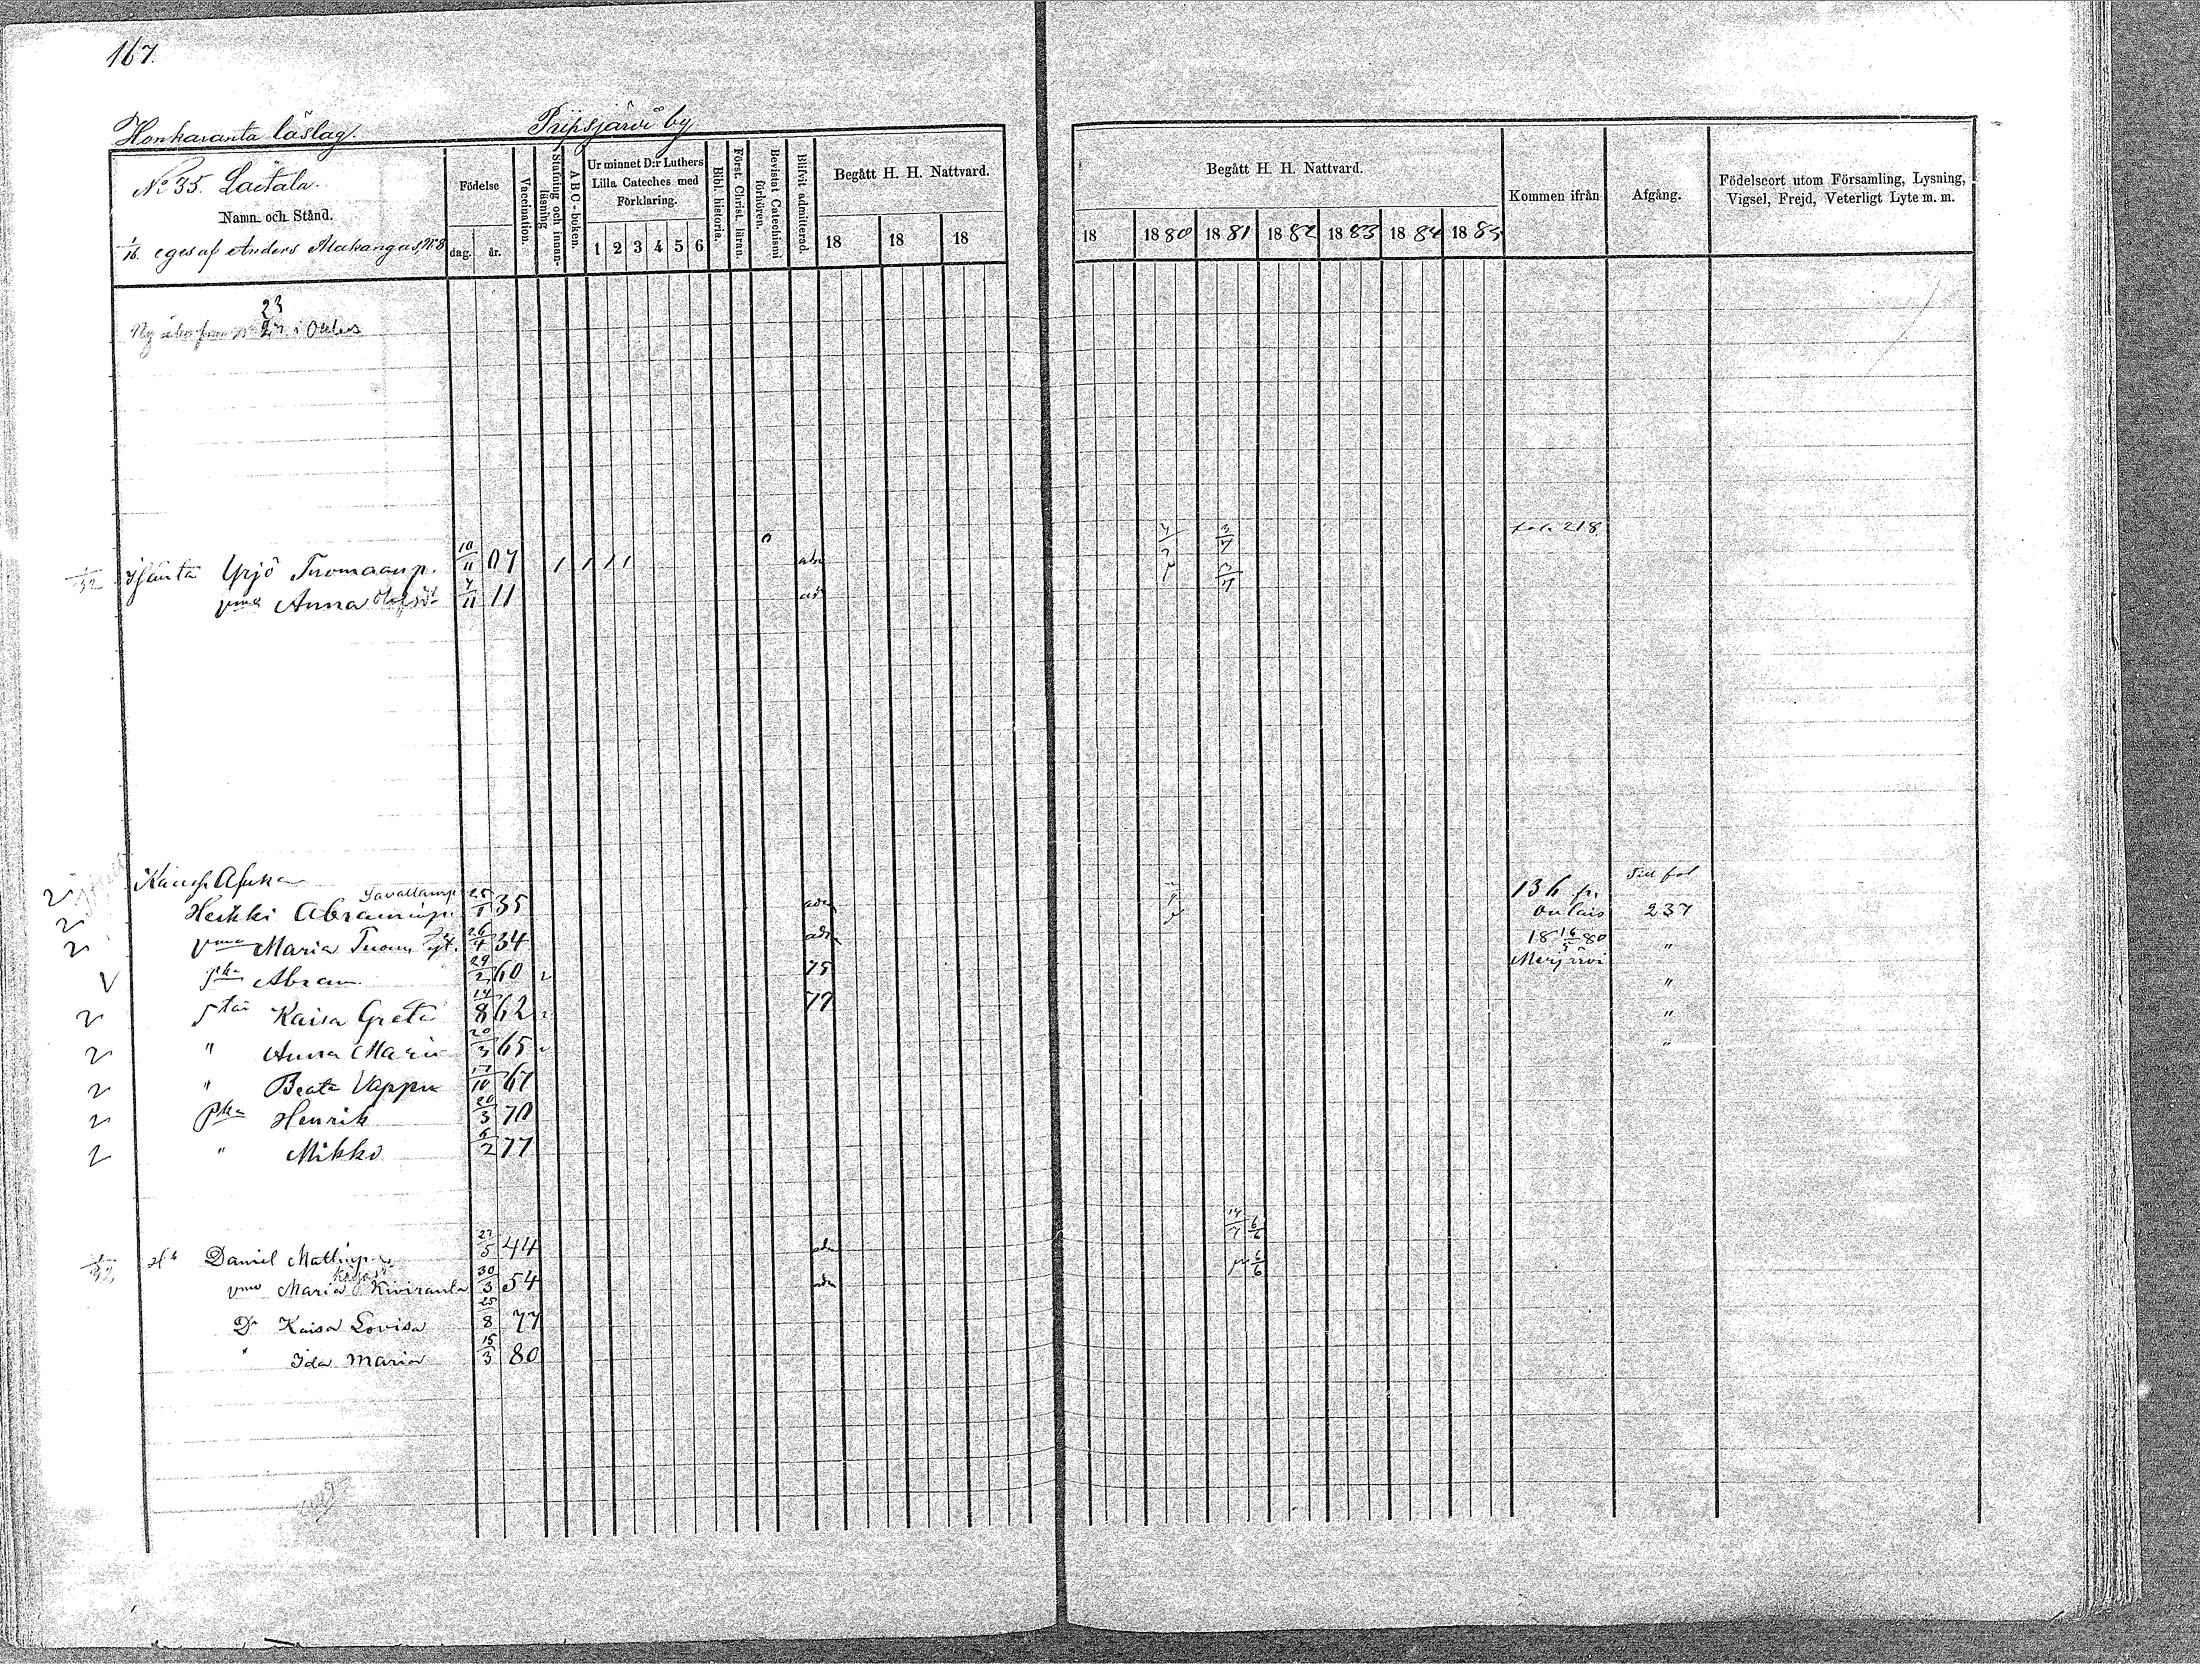 167.
Honkaranta läslag.
Pripsjärvi by
No 35. Laitala.
Namn och Stånd.
1/16 eges af Anders Alakangas, No 8
Födelse
dag. år.
Vaccination.
Stafning och innan-läsning
A B C-boken.
Ur minnet D:r Luthers
Lilla Cateches med
Förklaring.
1 2 3 4 5 6
Bibl. historia.
Först. Christ. läran.
Bevistat Catechismi förhören.
Blifvit admitterad.
Begått H. H. Nattvard.
18 18 18
Begått H. H. Nattvard.
18 1880 1881 1882 1883 1884 1885
Kommen ifrån
Afgång.
Födelseort utom Församling, Lysning,
Vigsel, Frejd, Veterligt Lyte m. m.
23
Ny 27 i
fol. 218
1/32 Yrjö Tuomaanp. 10/11 07 1 1 1 1 3/7
vmo Anna Olofsd 7/11 11 ad 3/7
Till fol
Heikki Abraminp. 25/1 35 adm 136 fr. Oulais 237
vmo Maria Tuom. 26/4 34 adm 18 16/5 80 "
pka Abram 29/2 60 75 Merijärvi "
tär Kaisa Greta 14/8 62 79 "
" Anna Maria 20/3 65 "
" Beata Vappu 17/10 67
pka Henrik 20/3 70
" Mikko 6/2 77
Daniel Mattinp. 27/5 44 adm 14/7 6/6
vmo Maria Kiviranta 30/3 54 adm 6/6
Dr Kaisa Lovisa 25/8 77
" Ida Maria 15/3 80